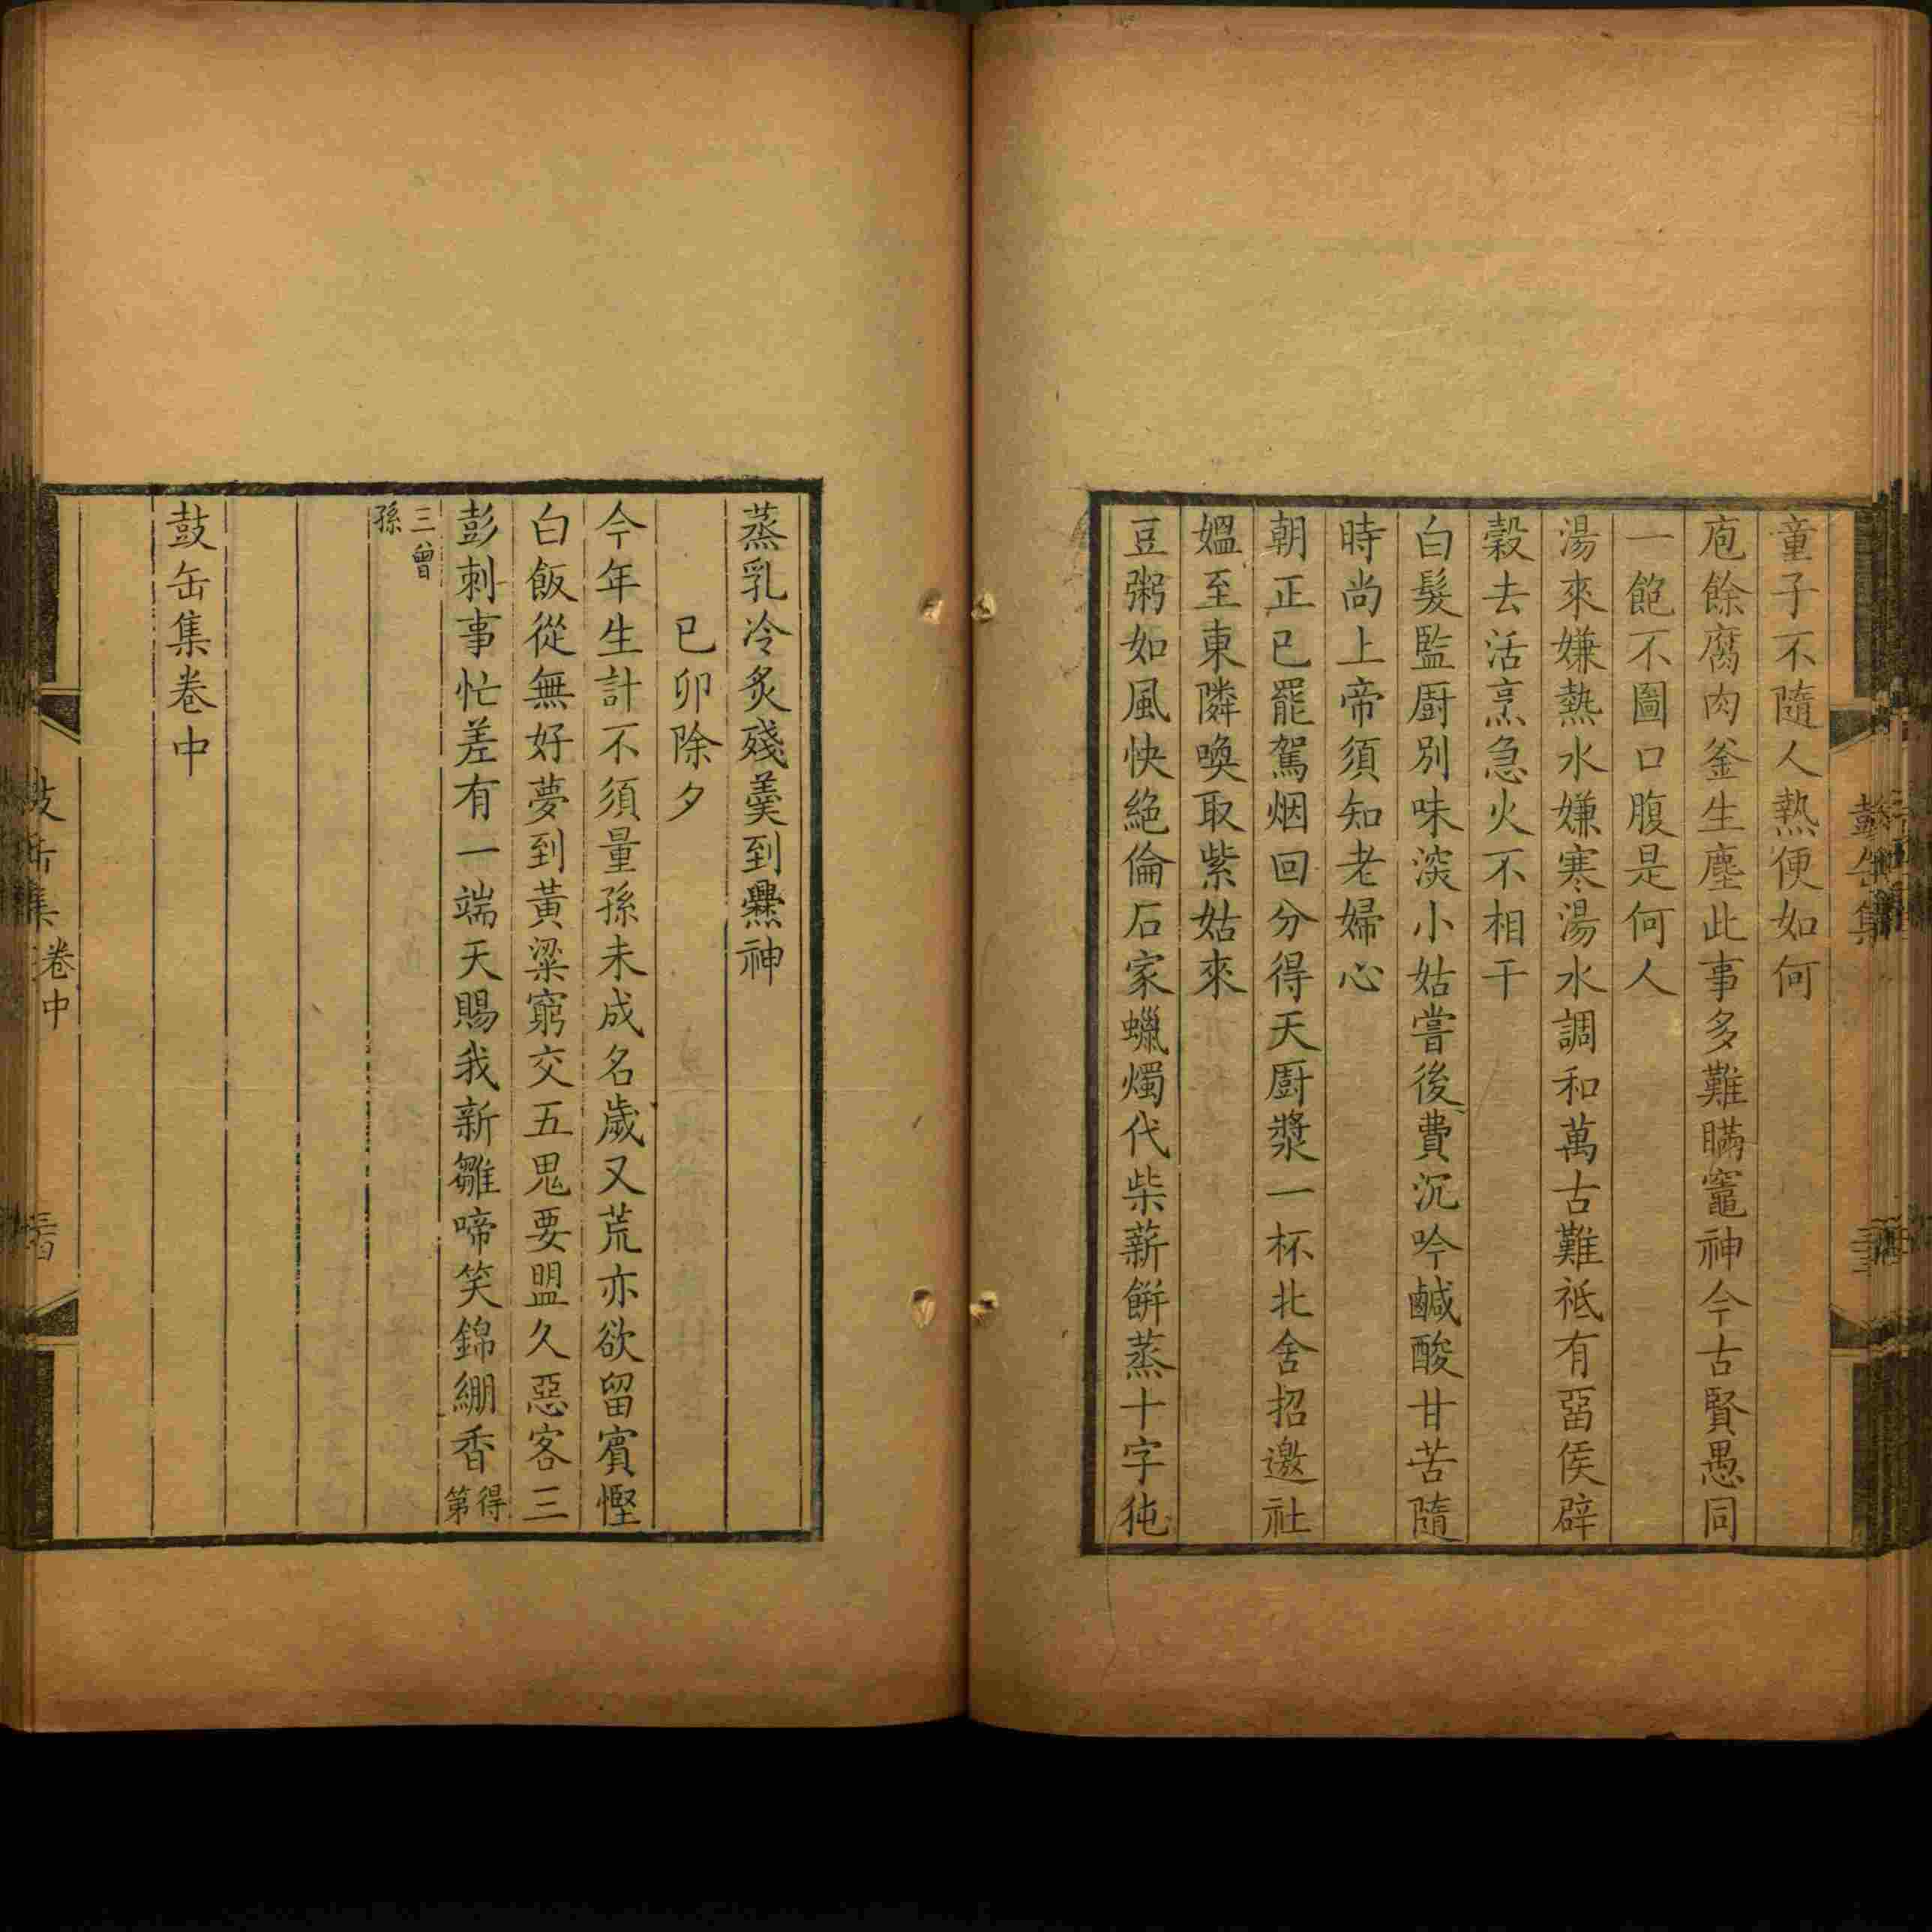 童子不隨人熱便如何
庖餘腐肉釜生塵此事多難瞞竈神今古賢愚同
一飽不圖口腹是何人
湯來嫌熱水嫌寒湯水調和萬古難祗有畱侯辟
穀去活烹急火不相干
白髮監厨別味淡小姑嘗後費沉吟鹹酸甘苦隨
時尚上帝須知老婦心
朝正已罷駕烟回分得天厨漿一杯北舍招邀社
媼至東隣喚取紫姑來
豆粥如風快絕倫石家蠟燭代柴薪餅蒸十字㹠
蒸乳冷炙殘羹到爨神
己卯除夕
今年生計不須量孫未成名歲又荒亦欲留賓慳
白飯從無好夢到黃粱窮交五鬼要盟久惡客三
彭刺事忙差有一端天賜我新雛啼笑錦綳香得第
三曾孫
鼓缶集卷中
鼓缶集 卷中